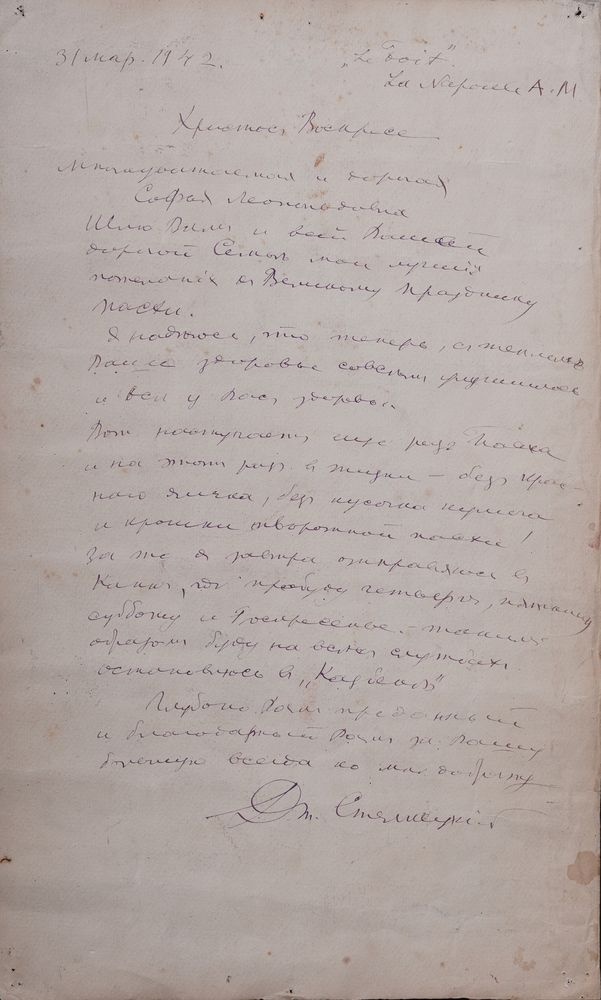 31 мар. 1942.
„Le Toit".
La Napoule A.M
Христос Воскресе
Многоуважаемая и дорогая
Софья Леонидовна
Шлю Вам и всей Вашей
дорогой Семье мои лучшія
пожеланія к Великому Празднику
Пасхи.
Я надеюсь, что теперь, с теплом
Ваше здоровье совсем улучшилось
и все у Вас здоровы.
Вот наступает еще раз Пасха
и на этот раз в жизни – без крас-
ного яичка, без кусочка кулича
и крошки творожной пасхи!
За то я завтра отправляюсь в
Канны, где пробуду четверг, пятницу
субботу и Воскресенье. – таким
образом буду на всех службах.
остановлюсь в „Казбеке"
Глубоко Вам преданный
и благодарный Вам за Вашу
всегда ко мне доброту
Дм. Стеллецкий